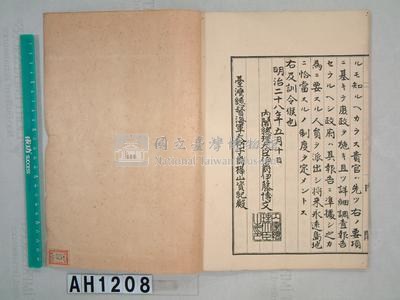 ルモ知ルヘカラス貴官ハ先ツ右ノ要項
ニ基キ庶政ヲ施キ且ツ詳細調査報告
セラルヘシ政府ハ其報告ニ準據シ之カ
為ニ要スル人員ヲ派出シ将来永遠島地
ニ恰當スルノ制度ヲ定メントス
右及訓令候也
明治二十八年五月十日
內閣總理大臣伯爵伊藤博文
臺灣總督海軍大將子爵樺山資紀殿
國立臺灣博物館
National Taiwan Museum
AH1208